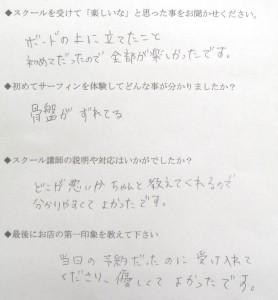 ◆スクールを受けて「楽しいな」と思った事をお聞かせください。
ボードの上に立てたこと
初めてだったので全部が楽しかったです。
◆初めてサーフィンを体験してどんな事が分かりましたか？
骨盤がずれてる
◆スクール講師の説明や対応はいかがでしたか？
どこが悪いかちゃんと教えてくれるので
分かりやすくてよかったです。
◆最後にお店の第一印象を教えて下さい
当日の予約だったのに受け入れて
くださり、優しくてよかったです。